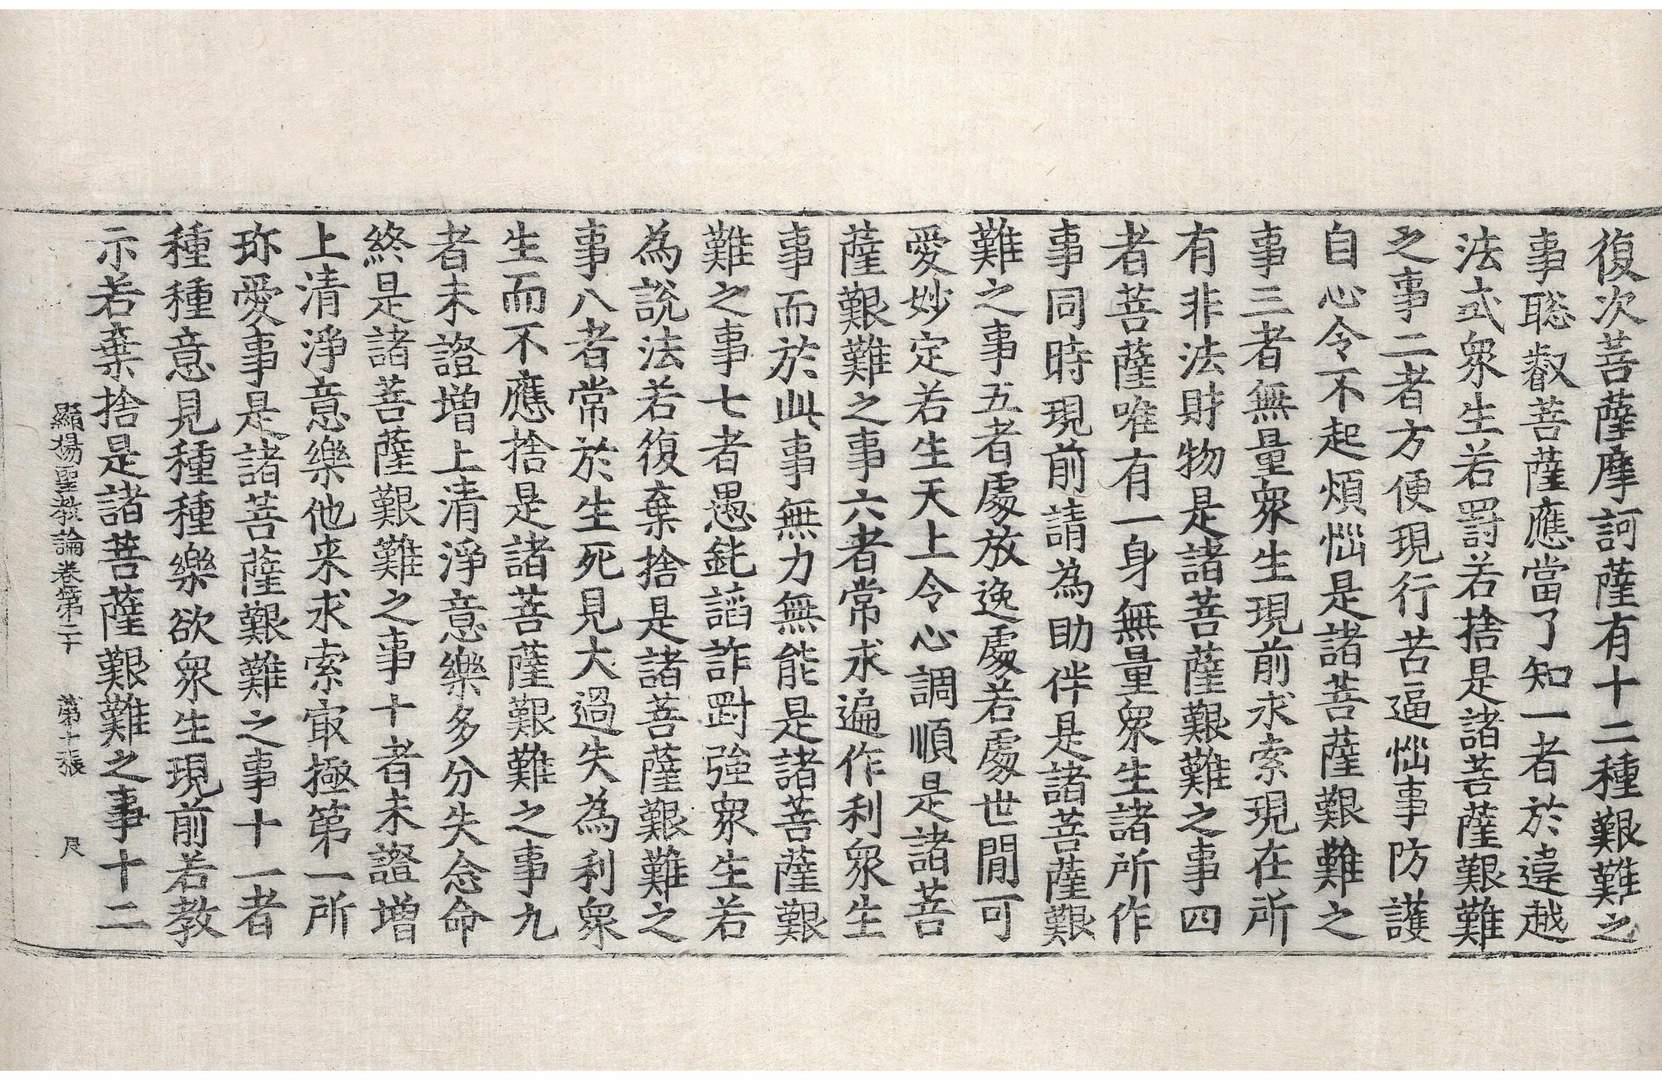 復次菩薩摩訶薩有十二種艱難之
事聡叡菩薩應當了知一者於違越
法式衆生若罸若捨是諸菩薩艱難
之事二者方便現行苦逼惱事防護
自心令不起煩惱是諸菩薩艱難之
事三者無量衆生現前求索現在所
有非法財物是諸菩薩艱難之事四
者菩薩唯有一身無量衆生諸所作
事同時現前請為助伴是諸菩薩艱
難之事五者處放逸處若處世間可
愛妙定若生天上令心調順是諸菩
薩艱難之事六者常求遍作利衆生
事而於此事無力無能是諸菩薩艱
難之事七者愚鈍諂詐剛強衆生若
為說法若復棄捨是諸菩薩艱難之
事八者常於生死見大過失為利衆
生而不應捨是諸菩薩艱難之事九
者未證增上清淨意樂多分失念命
終是諸菩薩艱難之事十者未證增
上清淨意樂他來求索㝡極第一所
珎愛事是諸菩薩艱難之事十一者
種種意見種種樂欲衆生現前若教
示若棄捨是諸菩薩艱難之事十二
顯揚聖教論卷第二十 第十張 尺